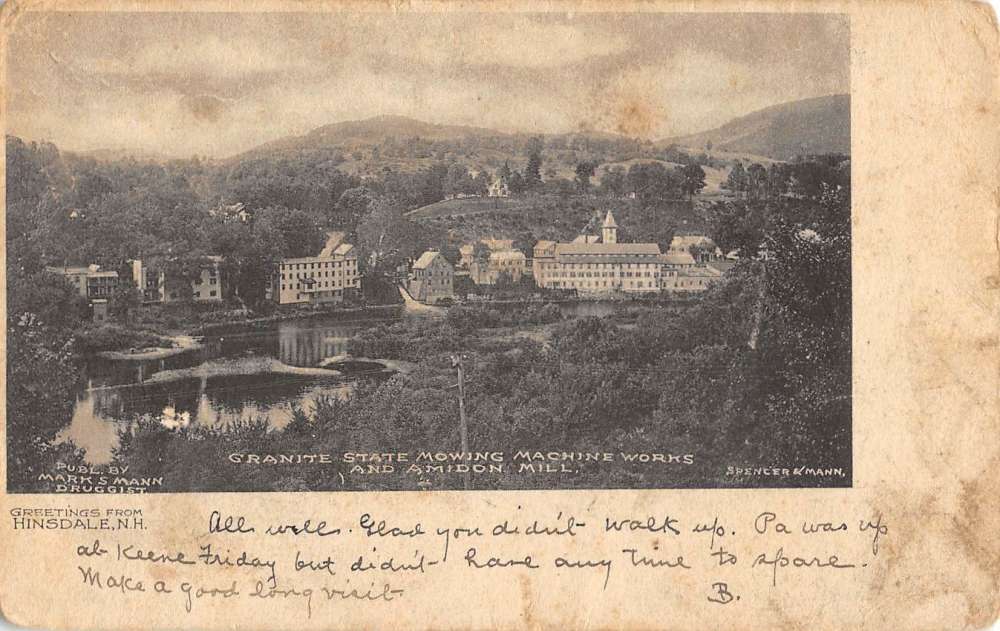 GRANITE STATE MOWING MACHINE WORKS
AND AMIDON MILL.
PUBL. BY
MARK S MANN
DRUGGIST
SPENCER & MANN,
GREETINGS FROM
HINSDALE, N.H.
All well. Glad you didn't walk up. Pa was up
at Keene Friday but didn't have any time to spare.
Make a good long visit
B.